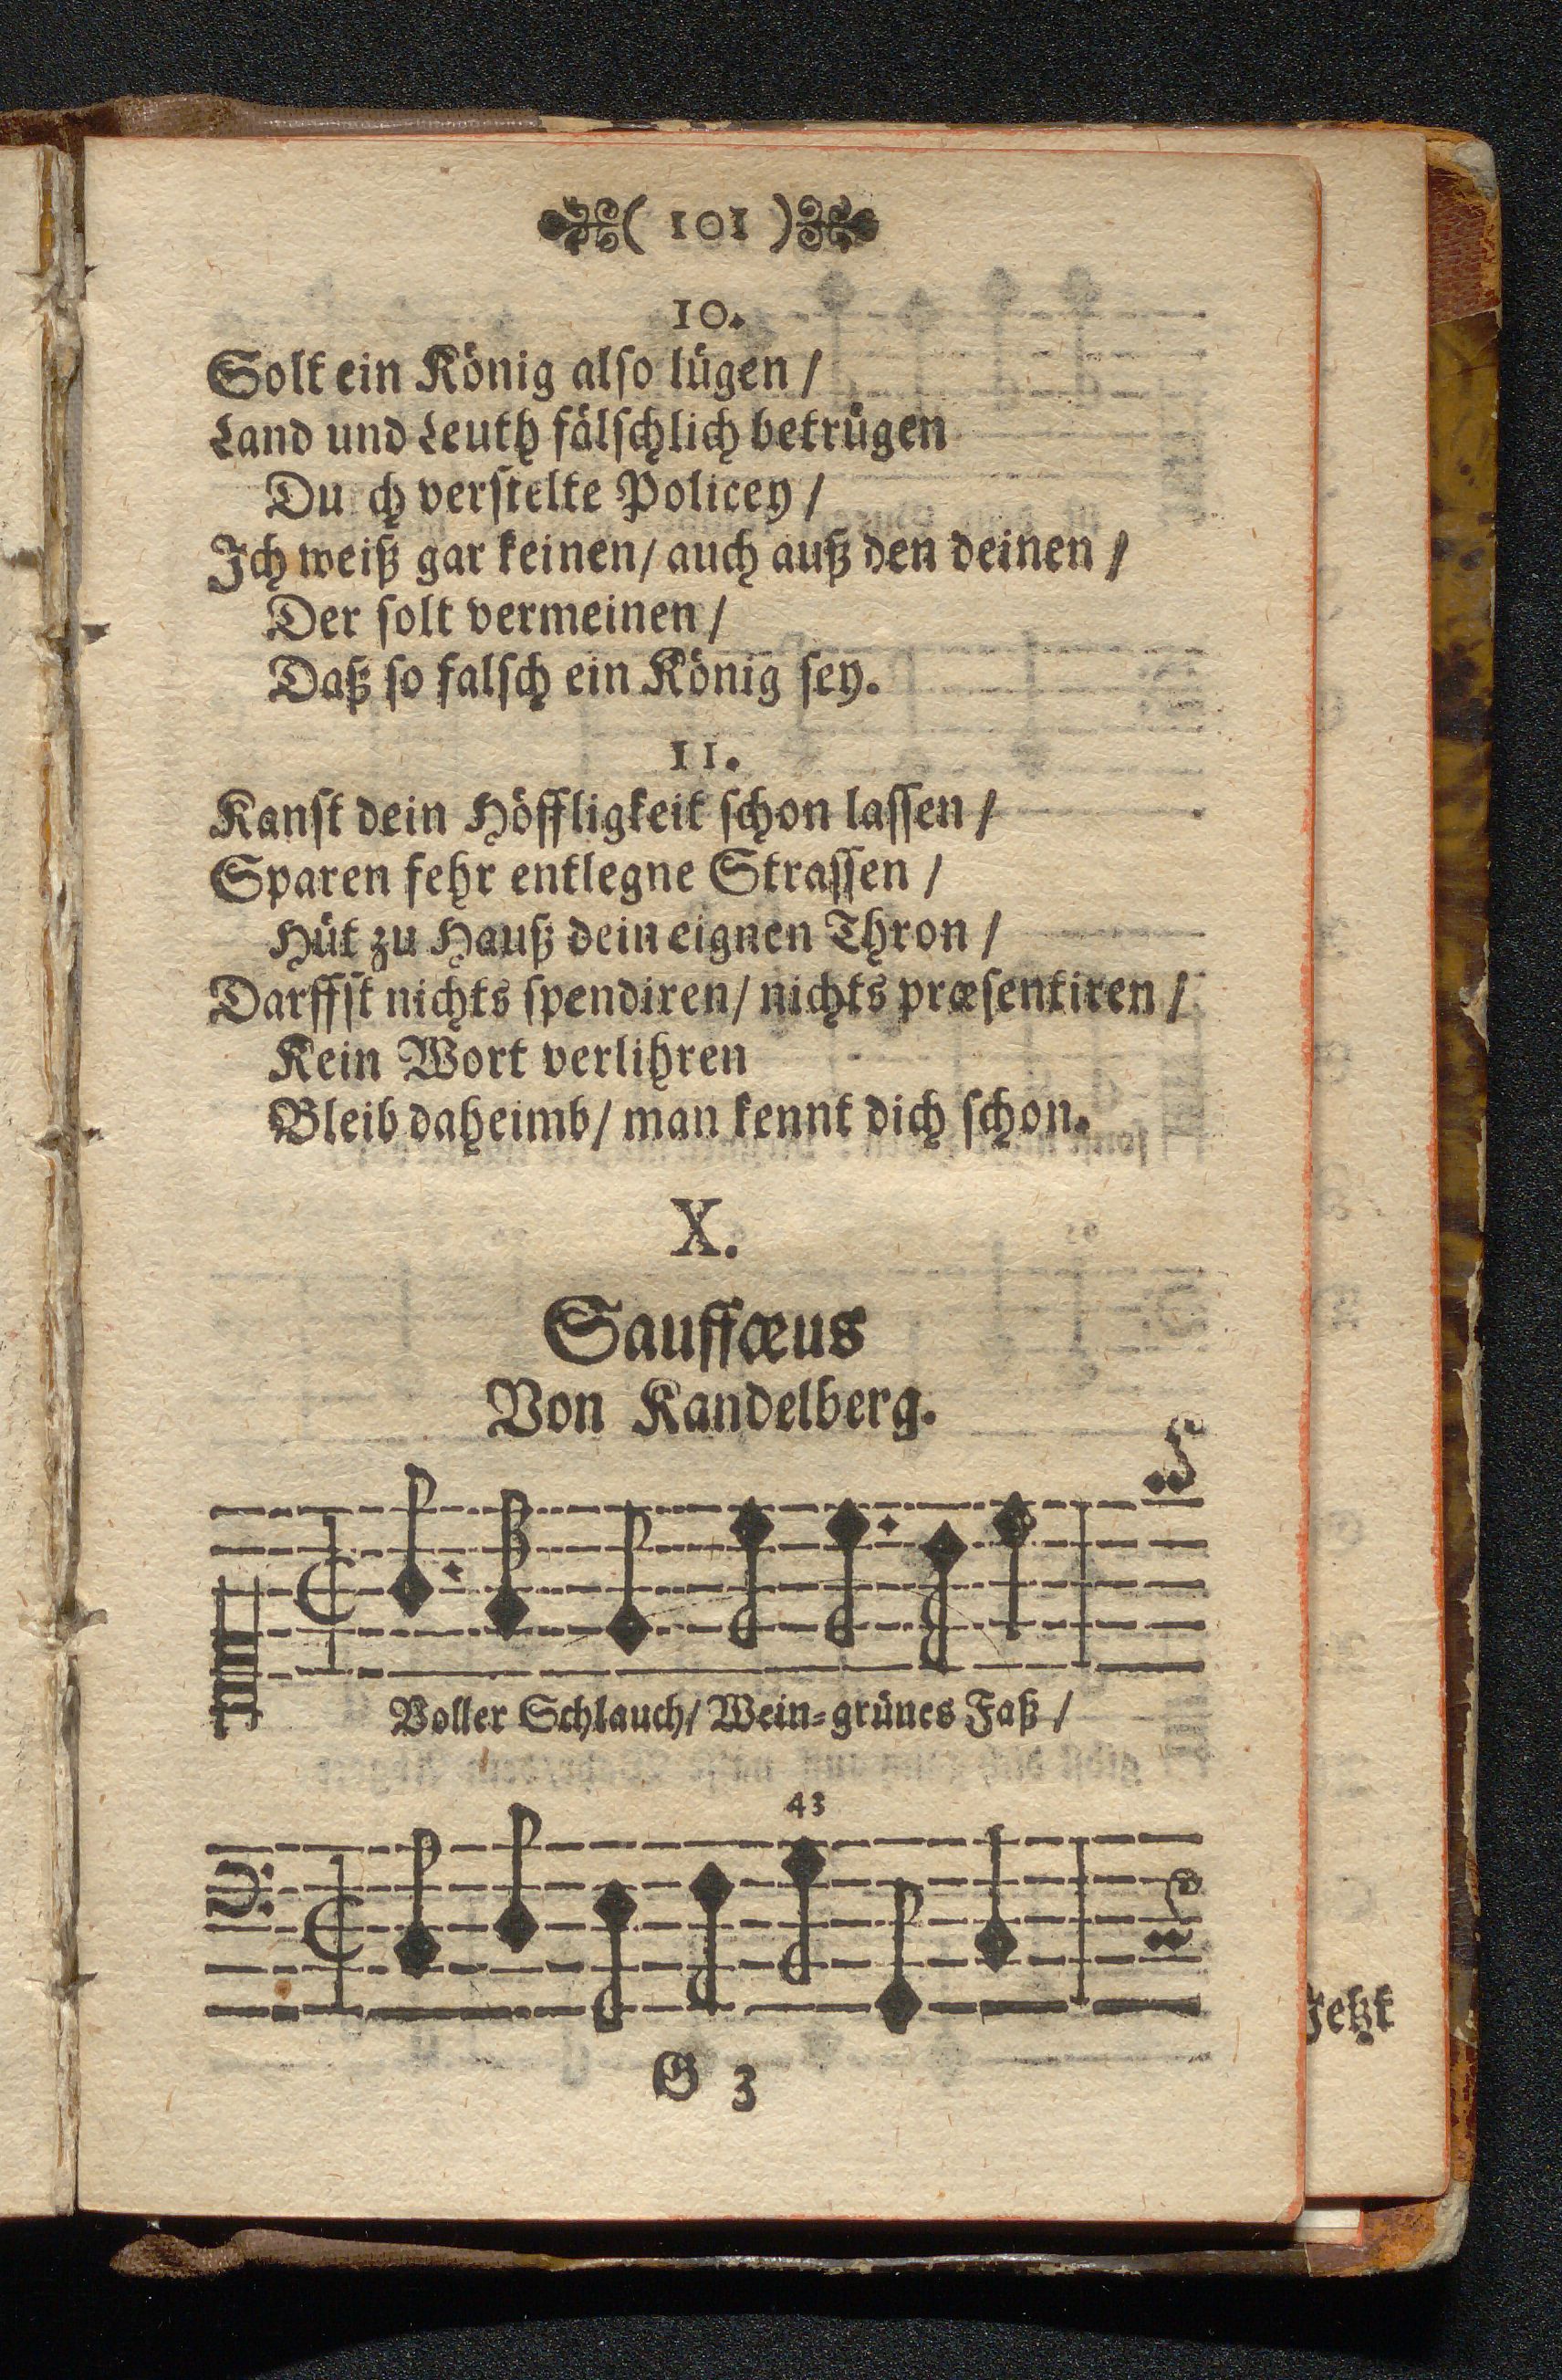 ( 101 )
10.
Solt ein König also lügen /
Land und Leuth fälschlich betrügen
Du ch verstelte Policey /
Ich weiß gar keinen / auch auß den deinen /
Der solt vermeinen /
Daß so falsch ein König sey.
11.
Kanst dein Höffligkeit schon lassen /
Sparen fehr entlegne Strassen /
Hüt zu Hauß dein eignen Thron /
Darffst nichts spendiren / nichts præsentiren /
Kein Wort verlihren
Bleib daheimb / man kennt dich schon.
X.
Sauffæus
Von Kandelberg.
Voller Schlauch / Wein-grünes Faß /
43
G 3
Jetzt